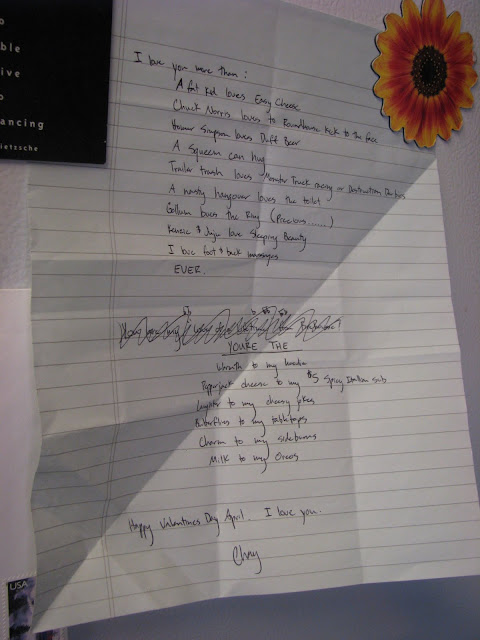 o
ble
ive
o
ancing
ietzsche
I love you more than:
A fat kid loves Easy Cheese
Chuck Norris loves to Roundhouse kick to the face
Homer Simpson loves Duff Beer
A Squeem can hug
Trailer trash loves Monster Truck racing or Destruction Derbies
A nasty hangover loves the toilet
Gollum loves the Ring (Precious......)
Kenzie & Juju love Sleeping Beauty
I love foot & back massages
EVER.
YOU'RE THE
Warmth to my
Pepperjack cheese to my $5 Spicy Italian sub
Laughter to my cheesy jokes
Butterflies to my
Charm to my sideburns
Milk to my Oreos
Happy Valentines Day April. I love you.
USA